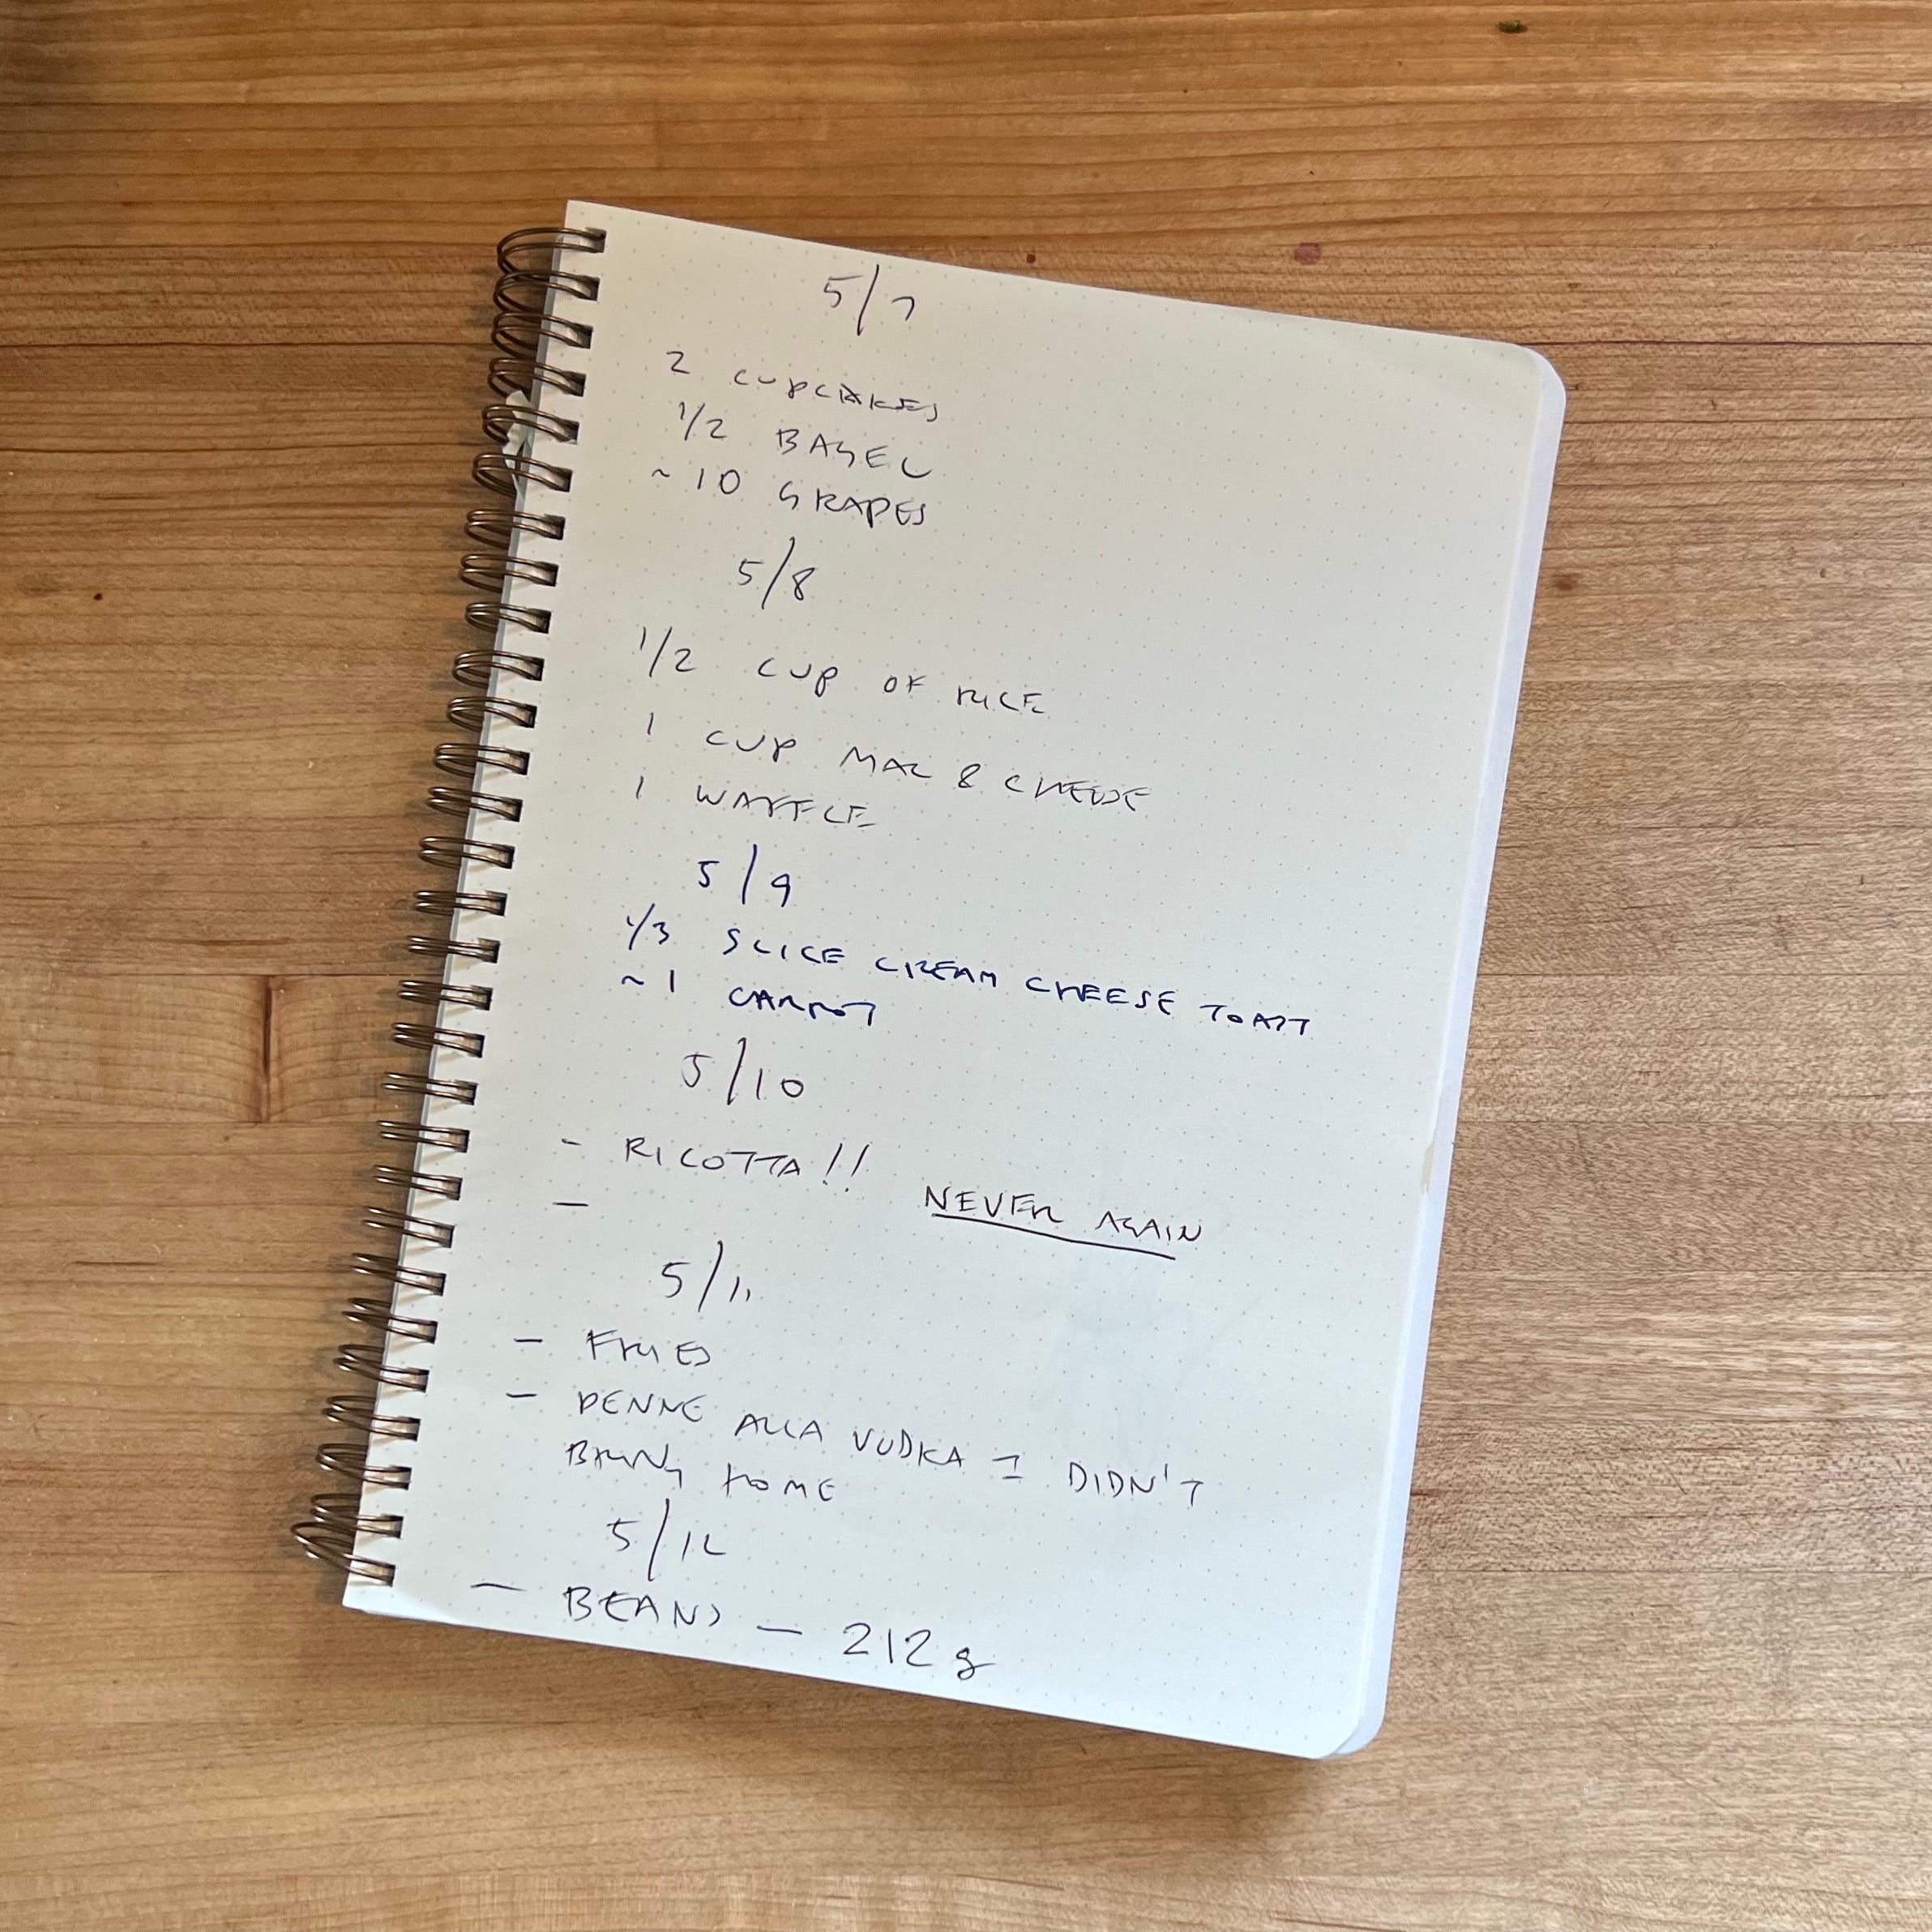 5/7
2 CUPCAKES
1/2 BAGEL
~10 GRAPES
5/8
1/2 CUP OF RICE
1 CUP MAC & CHEESE
1 WAFFLE
5/9
1/3 SLICE CREAM CHEESE TOAST
~1 CARROT
5/10
- RICOTTA!!
- NEVER AGAIN
5/11
- FRIES
- PENNE ALLA VODKA I DIDN'T
BRING HOME
5/12
- BEANS - 212g